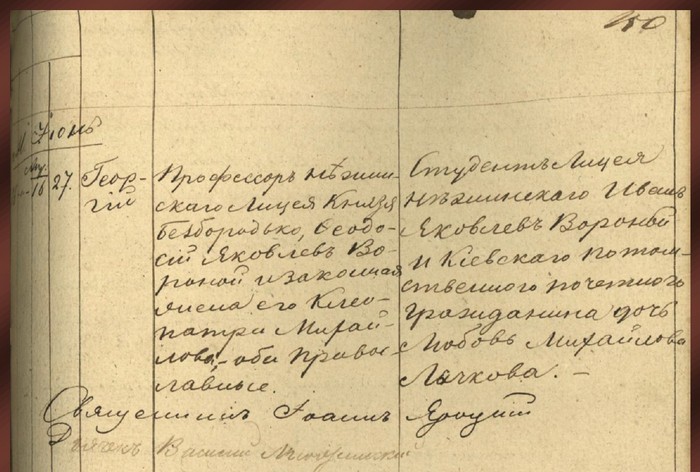 150
Іюнь
16 27. Геор-
гій
Профессоръ Нѣжин-
скаго Лицея Князя
Безбородько, Ѳеодо-
сій Яковлевъ Во-
роной и законная
жена его Клео-
патра Михай-
лова, оба право-
славные.
Студентъ Лицея
Нѣжинскаго Иванъ
Яковлевъ Вороной
и Кіевскаго потом-
ственного почетного
гражданина дочь
Любовь Михайлова
Личкова. –
Священникъ Іоаннъ
Дьячокъ Василій